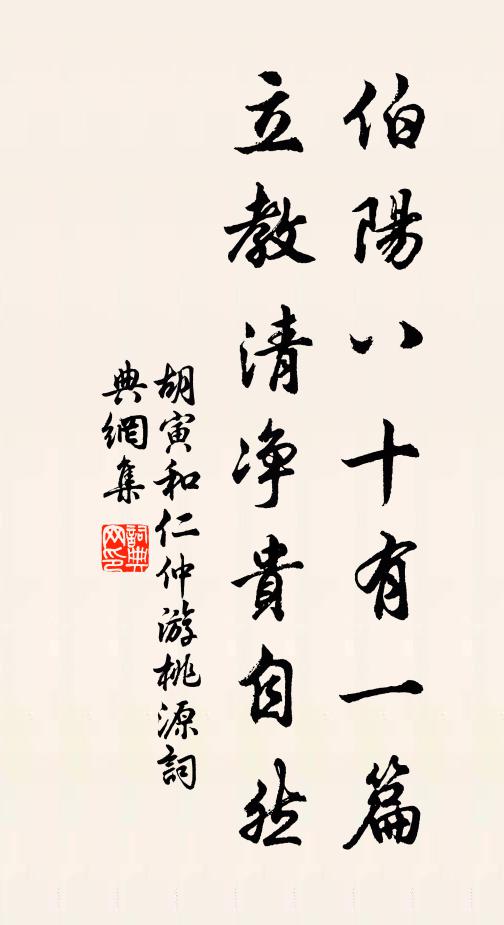 伯陽八十有一篇
立教清净貴自然
胡寅和仁仲游桃源詞
典網集
詞典
网印